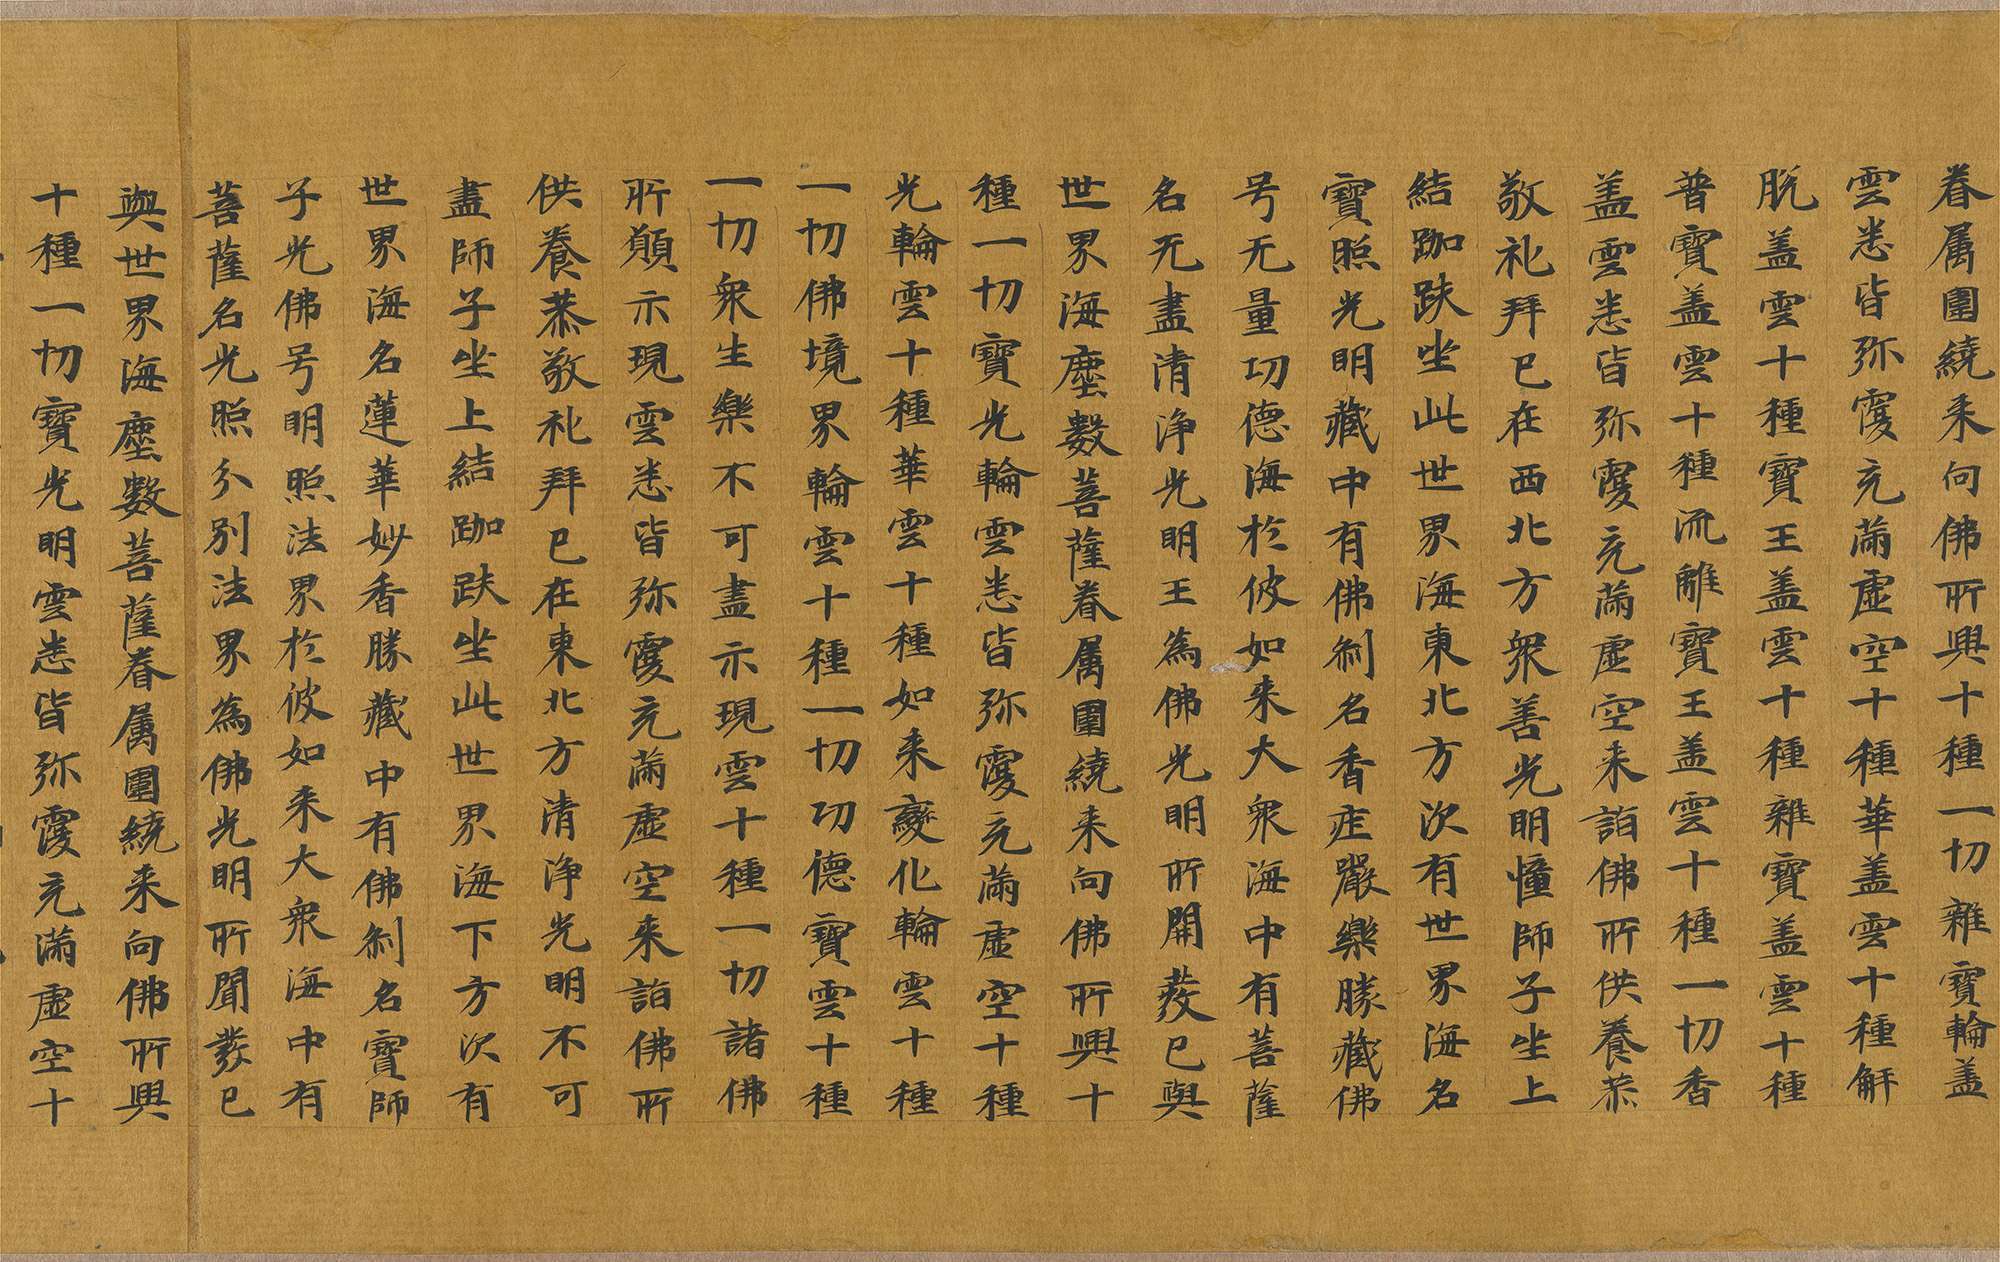 眷属圍繞来向佛所興十種一切雜寶輪盖
雲悉皆弥覆充滿虚空十種華盖雲十種解
脱盖雲十種寶王盖雲十種雜寶盖雲十種
普寶盖雲十種流離寶王盖雲十種一切香
盖雲悉皆弥覆充滿虚空来詣佛所供養恭
敬礼拜已在西北方衆善光明憧師子坐上
結跏趺坐此世界海東北方次有世界海名
寶照光明藏中有佛刹名香庄嚴樂勝藏佛
号无量功德海於彼如来大衆海中有菩薩
名无盡清浄光明王為佛光明所開發已與
世界海塵數菩薩眷属圍繞来向佛所興十
種一切寶光輪雲悉皆弥覆充滿虚空十種
光輪雲十種華雲十種如来變化輪雲十種
一切佛境界輪雲十種一切功德寶雲十種
一切衆生樂不可盡示現雲十種一切諸佛
所願示現雲悉皆弥覆充滿虚空来詣佛所
供養恭敬礼拜已在東北方清浄光明不可
盡師子坐上結跏趺坐此世界海下方次有
世界海名蓮華妙香勝藏中有佛刹名寶師
子光佛号明照法界於彼如来大衆海中有
菩薩名光照分别法界為佛光明所開發已
與世界海塵數菩薩眷属圍繞来向佛所興
十種一切寶光明雲悉皆弥覆充滿虚空十